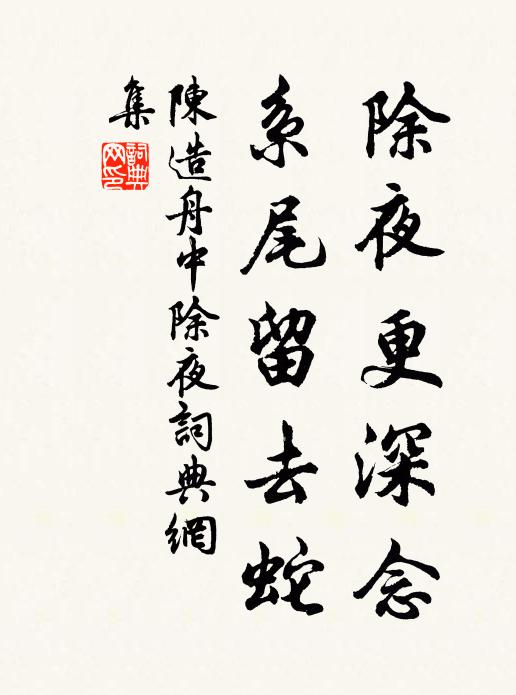 除夜更深念
系尾留去蛇
陳造舟中除夜詞典網
集
詞典
网印